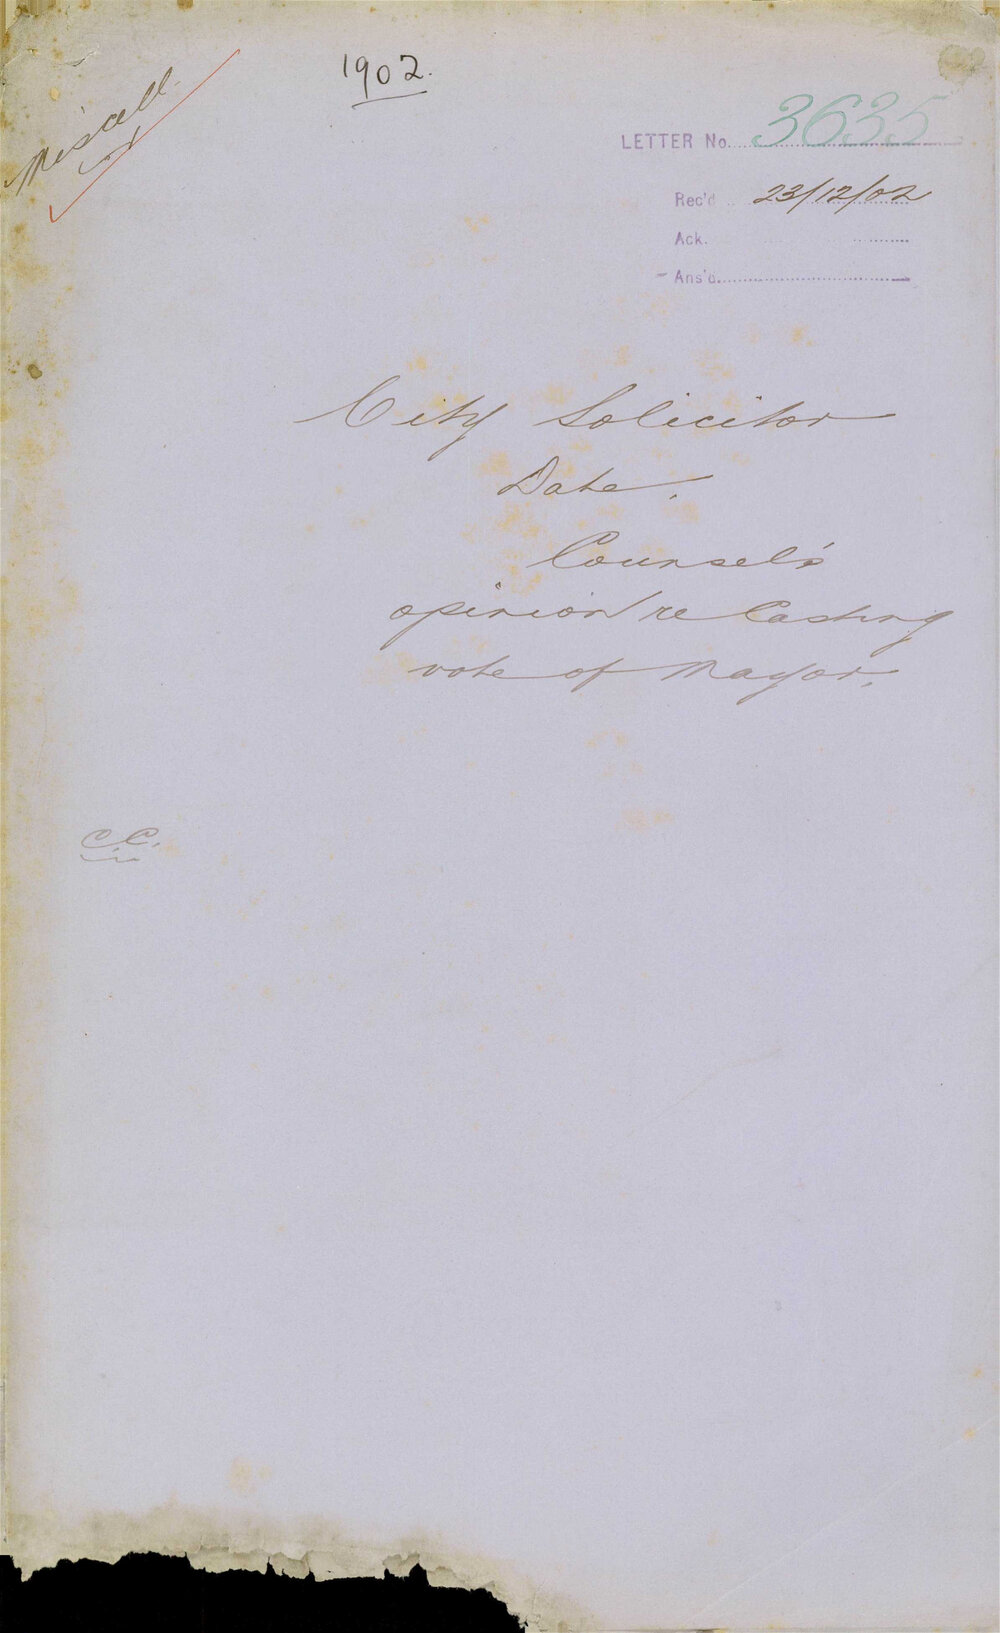 1902.
Miscell.
LETTER No. 3635
Rec'd 23/12/02
Ack.
Ans'd.
City Solicitor
Date.
Counsel's
opinion re Casting
vote of Mayor.
C.C.